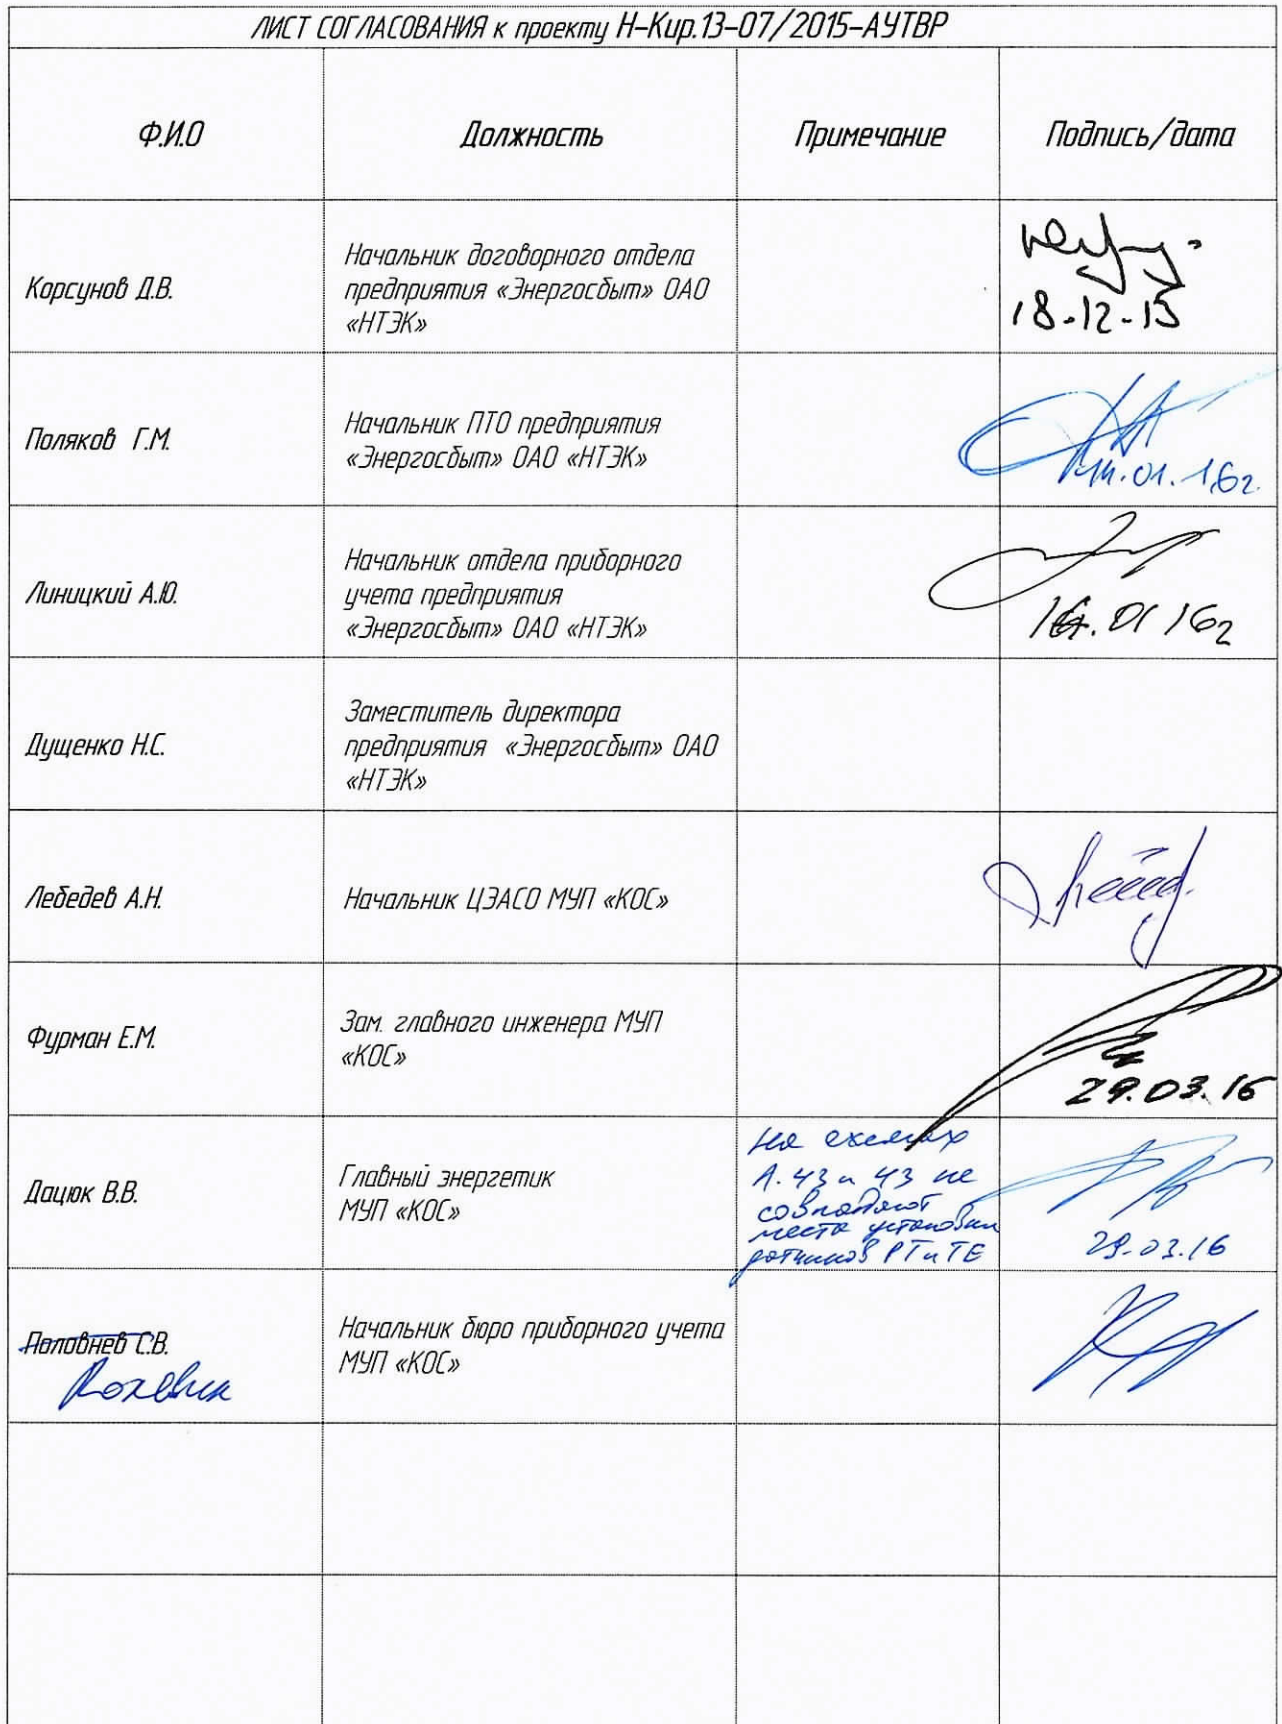 ЛИСТ СОГЛАСОВАНИЯ к проекту Н-Кир.13-07/2015-АУТВР
Ф.И.О
Должность
Примечание
Подпись/дата
Корсунов Д.В.
Начальник договорного отдела
предприятия «Энергосбыт» ОАО
«НТЭК»
18.12.15
Поляков Г.М.
Начальник ПТО предприятия
«Энергосбыт» ОАО «НТЭК»
14.01.16г.
Линицкий А.Ю.
Начальник отдела приборного
учета предприятия
«Энергосбыт» ОАО «НТЭК»
01 16г
Дущенко Н.С.
Заместитель директора
предприятия «Энергосбыт» ОАО
«НТЭК»
Лебедев А.Н.
Начальник ЦЭАСО МУП «КОС»
Фурман Е.М.
Зам. главного инженера МУП
«КОС»
29.03.16
Дацюк В.В.
Главный энергетик
МУП «КОС»
на схемах
А.43 и 43 не
совпадают
места установки
датчиков РТ и ТЕ
29.03.16
Половнев С.В.
Начальник бюро приборного учета
МУП «КОС»